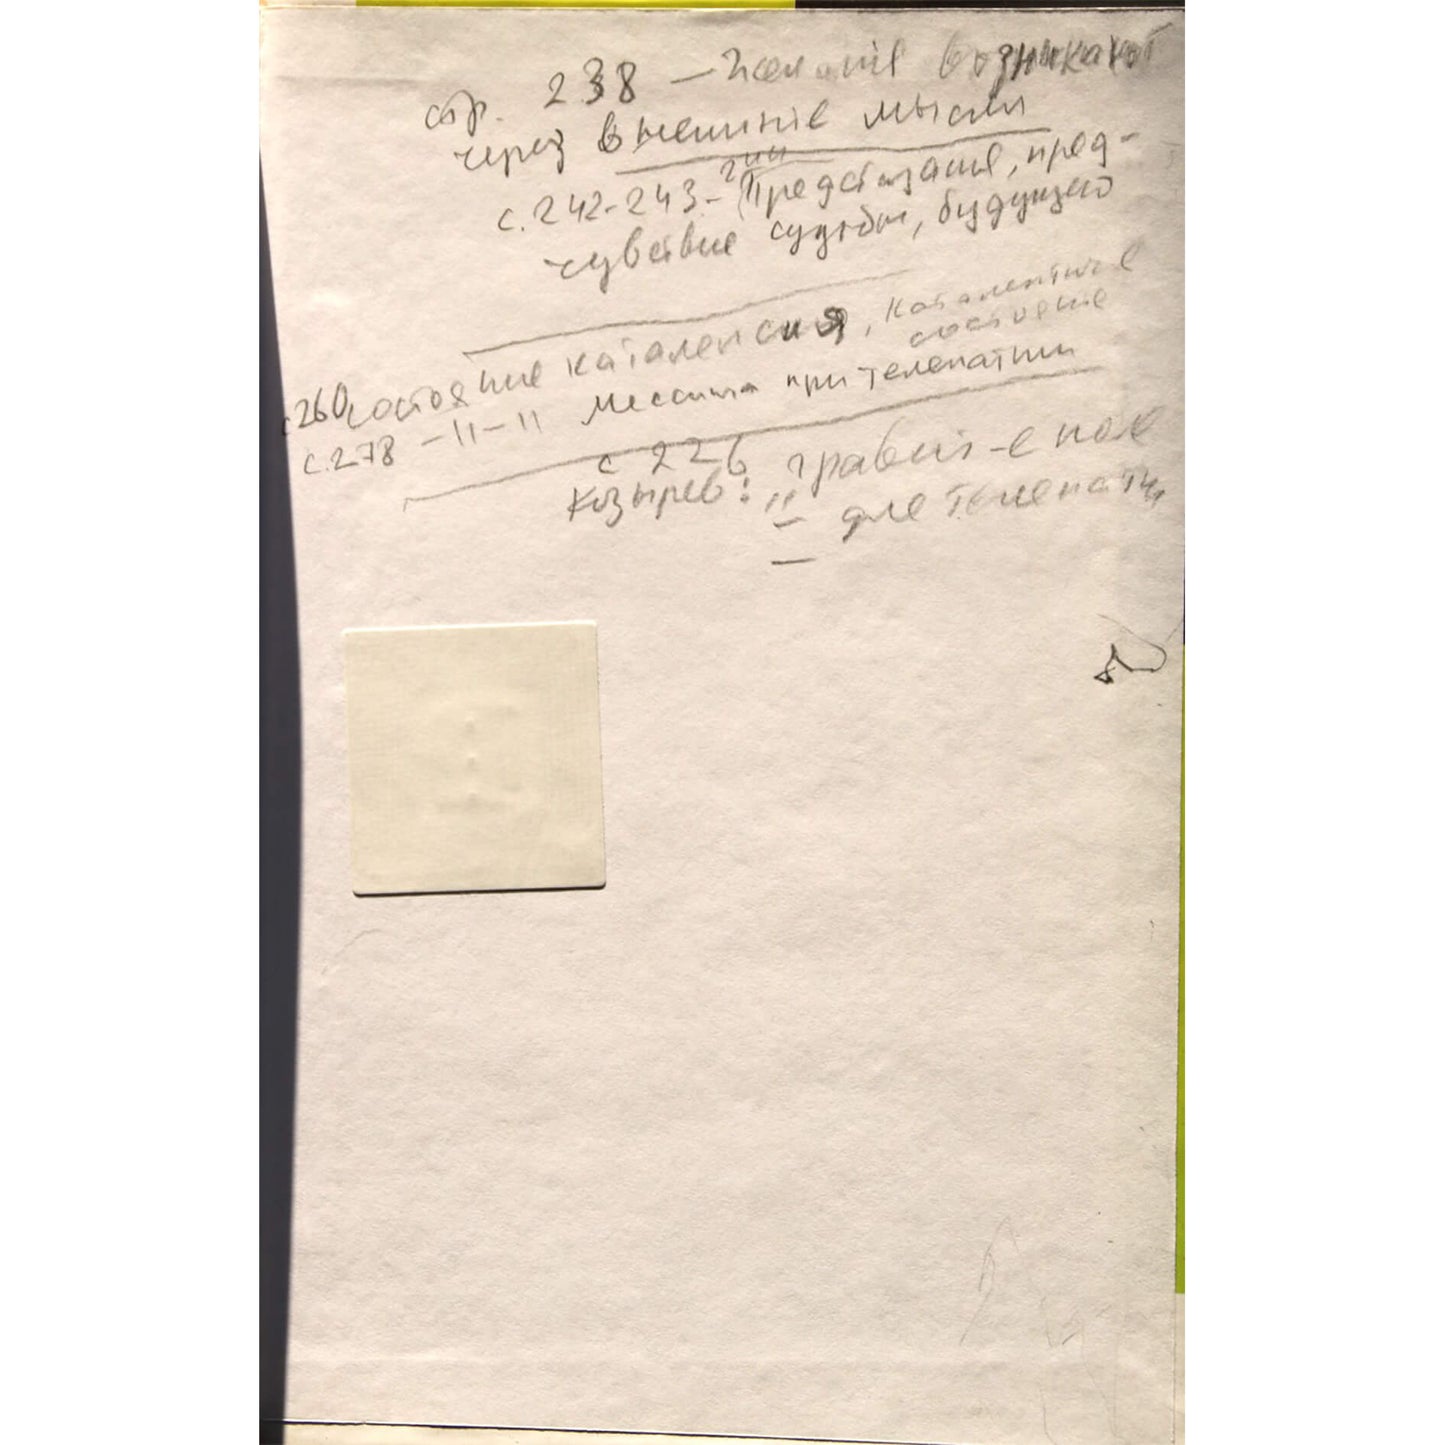 стр. 238 — Желания возникают
через внешние мысли
с. 242-243 - Предсказание, пред-
чувствие судьбы, будущего
с 260 состояние каталепсия, каталептич-е
состояние
с. 278 -11-11 Мессинга при телепатии
с 226
Козырев: „гравит-е поле
— для телепатии